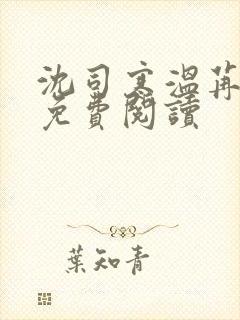 沈司寒溫苒
免費閱讀
葉知青